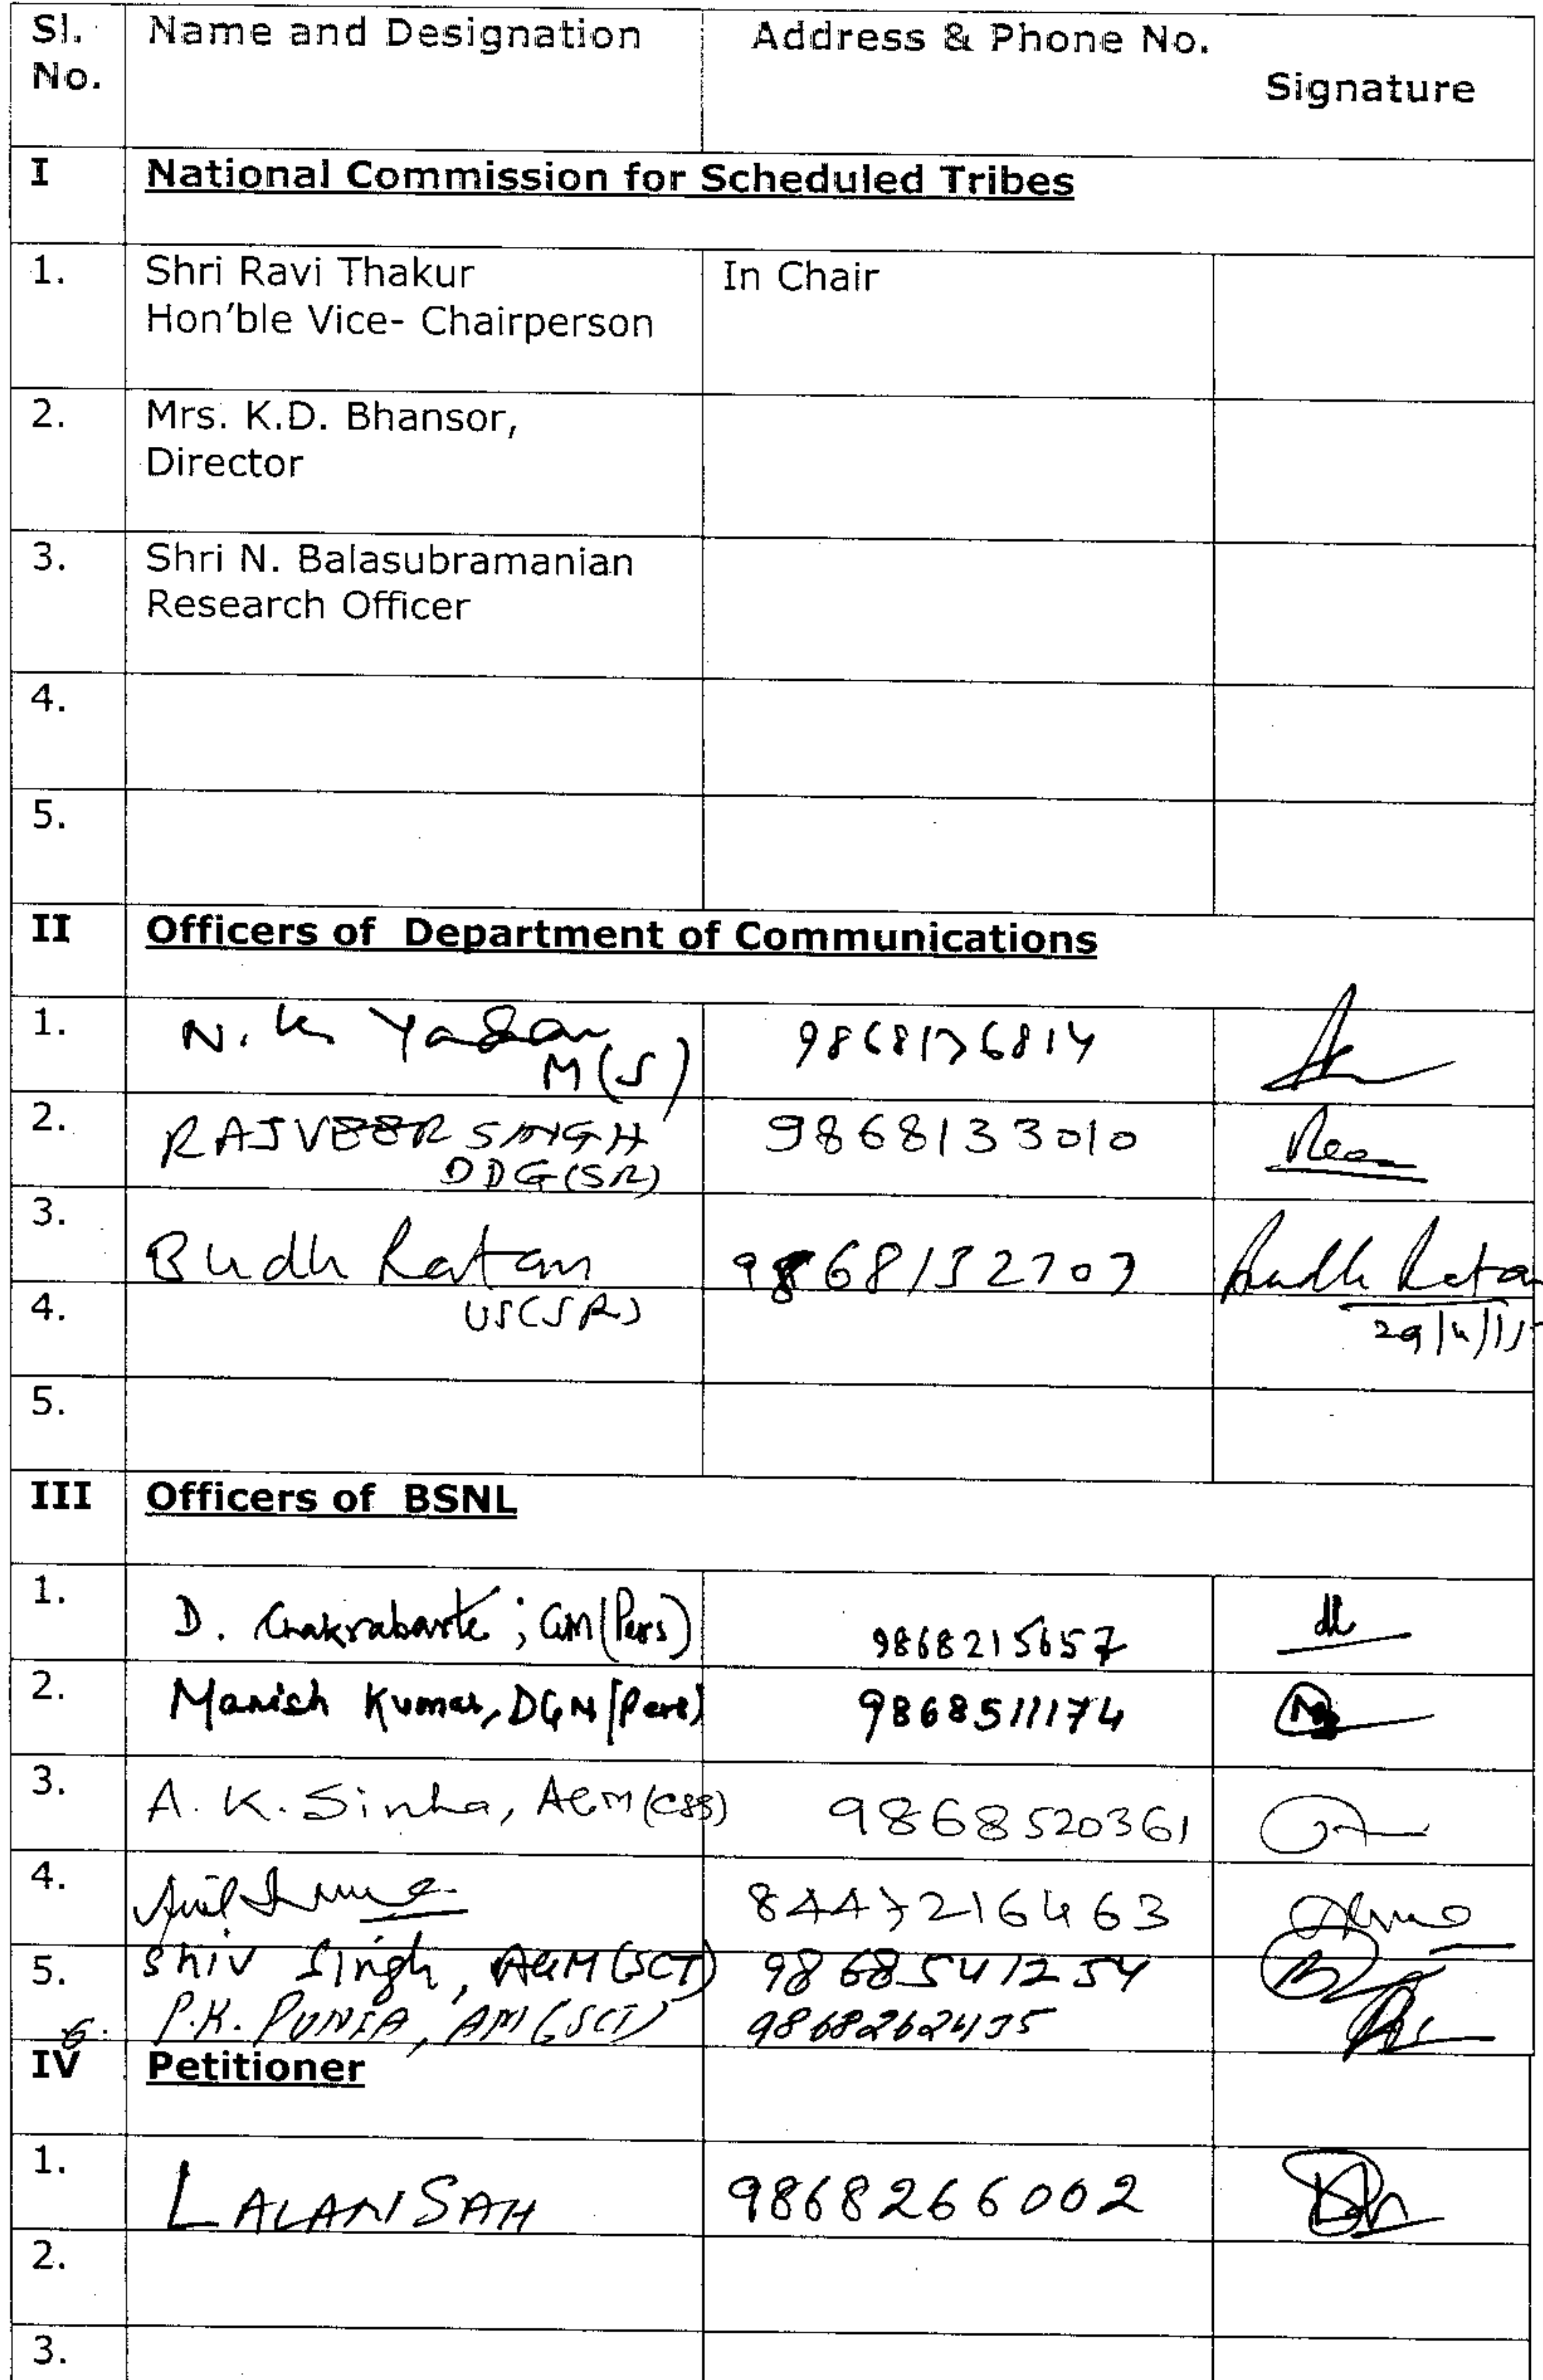 Sl. Name and Designation Address & Phone No.
No. Signature
I National Commission for Scheduled Tribes
1. Shri Ravi Thakur In Chair
Hon'ble Vice- Chairperson
2. Mrs. K.D. Bhansor,
Director
3. Shri N. Balasubramanian
Research Officer
4.
5.
II Officers of Department of Communications
1. N. K Yadav 9868136814
M(S)
2. RAJVEER SINGH 9868133010
DDG(SR)
3. Budh Ratan Budh Ratan
4. US(SR)
5.
III Officers of BSNL
1. D. Chakrabarti; GM(Pers) 9868215657
2. Manish Kumar, DGM(Pers) 9868511174
3. A. K. Sinha, AGM 9868520361
4. Anil 8447216463
5. Shiv Singh, AGM(SCT) 9868541254
6. P.K. PUNIA, AM(SCT)
IV Petitioner
1. LALAN SAH 9868266002
2.
3.